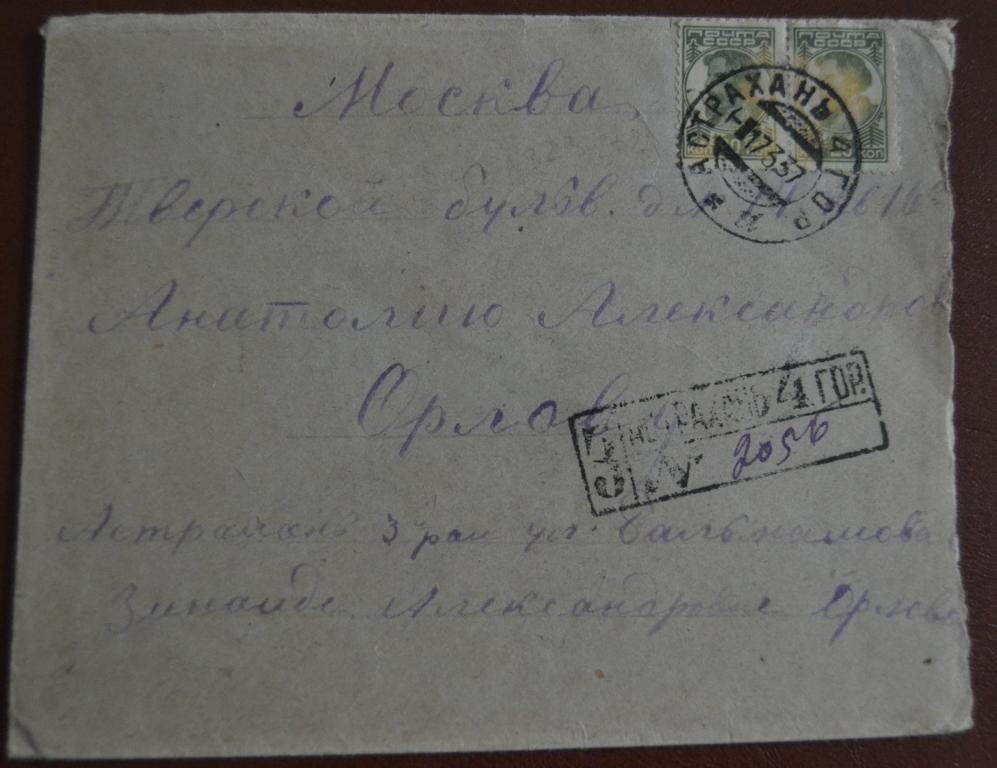 ПОЧТА СССР ПОЧТА СССР
КОП КОП
АСТРАХАНЬ 4 ГОР.
17337
Москва
Тверской бульв. д.
Анатолию Александров
Орлову
З АСТРАХАНЬ 4. ГОР.
№ 2056
Астрахань 3 рай ул.
Зинаиде Александровне Орлов